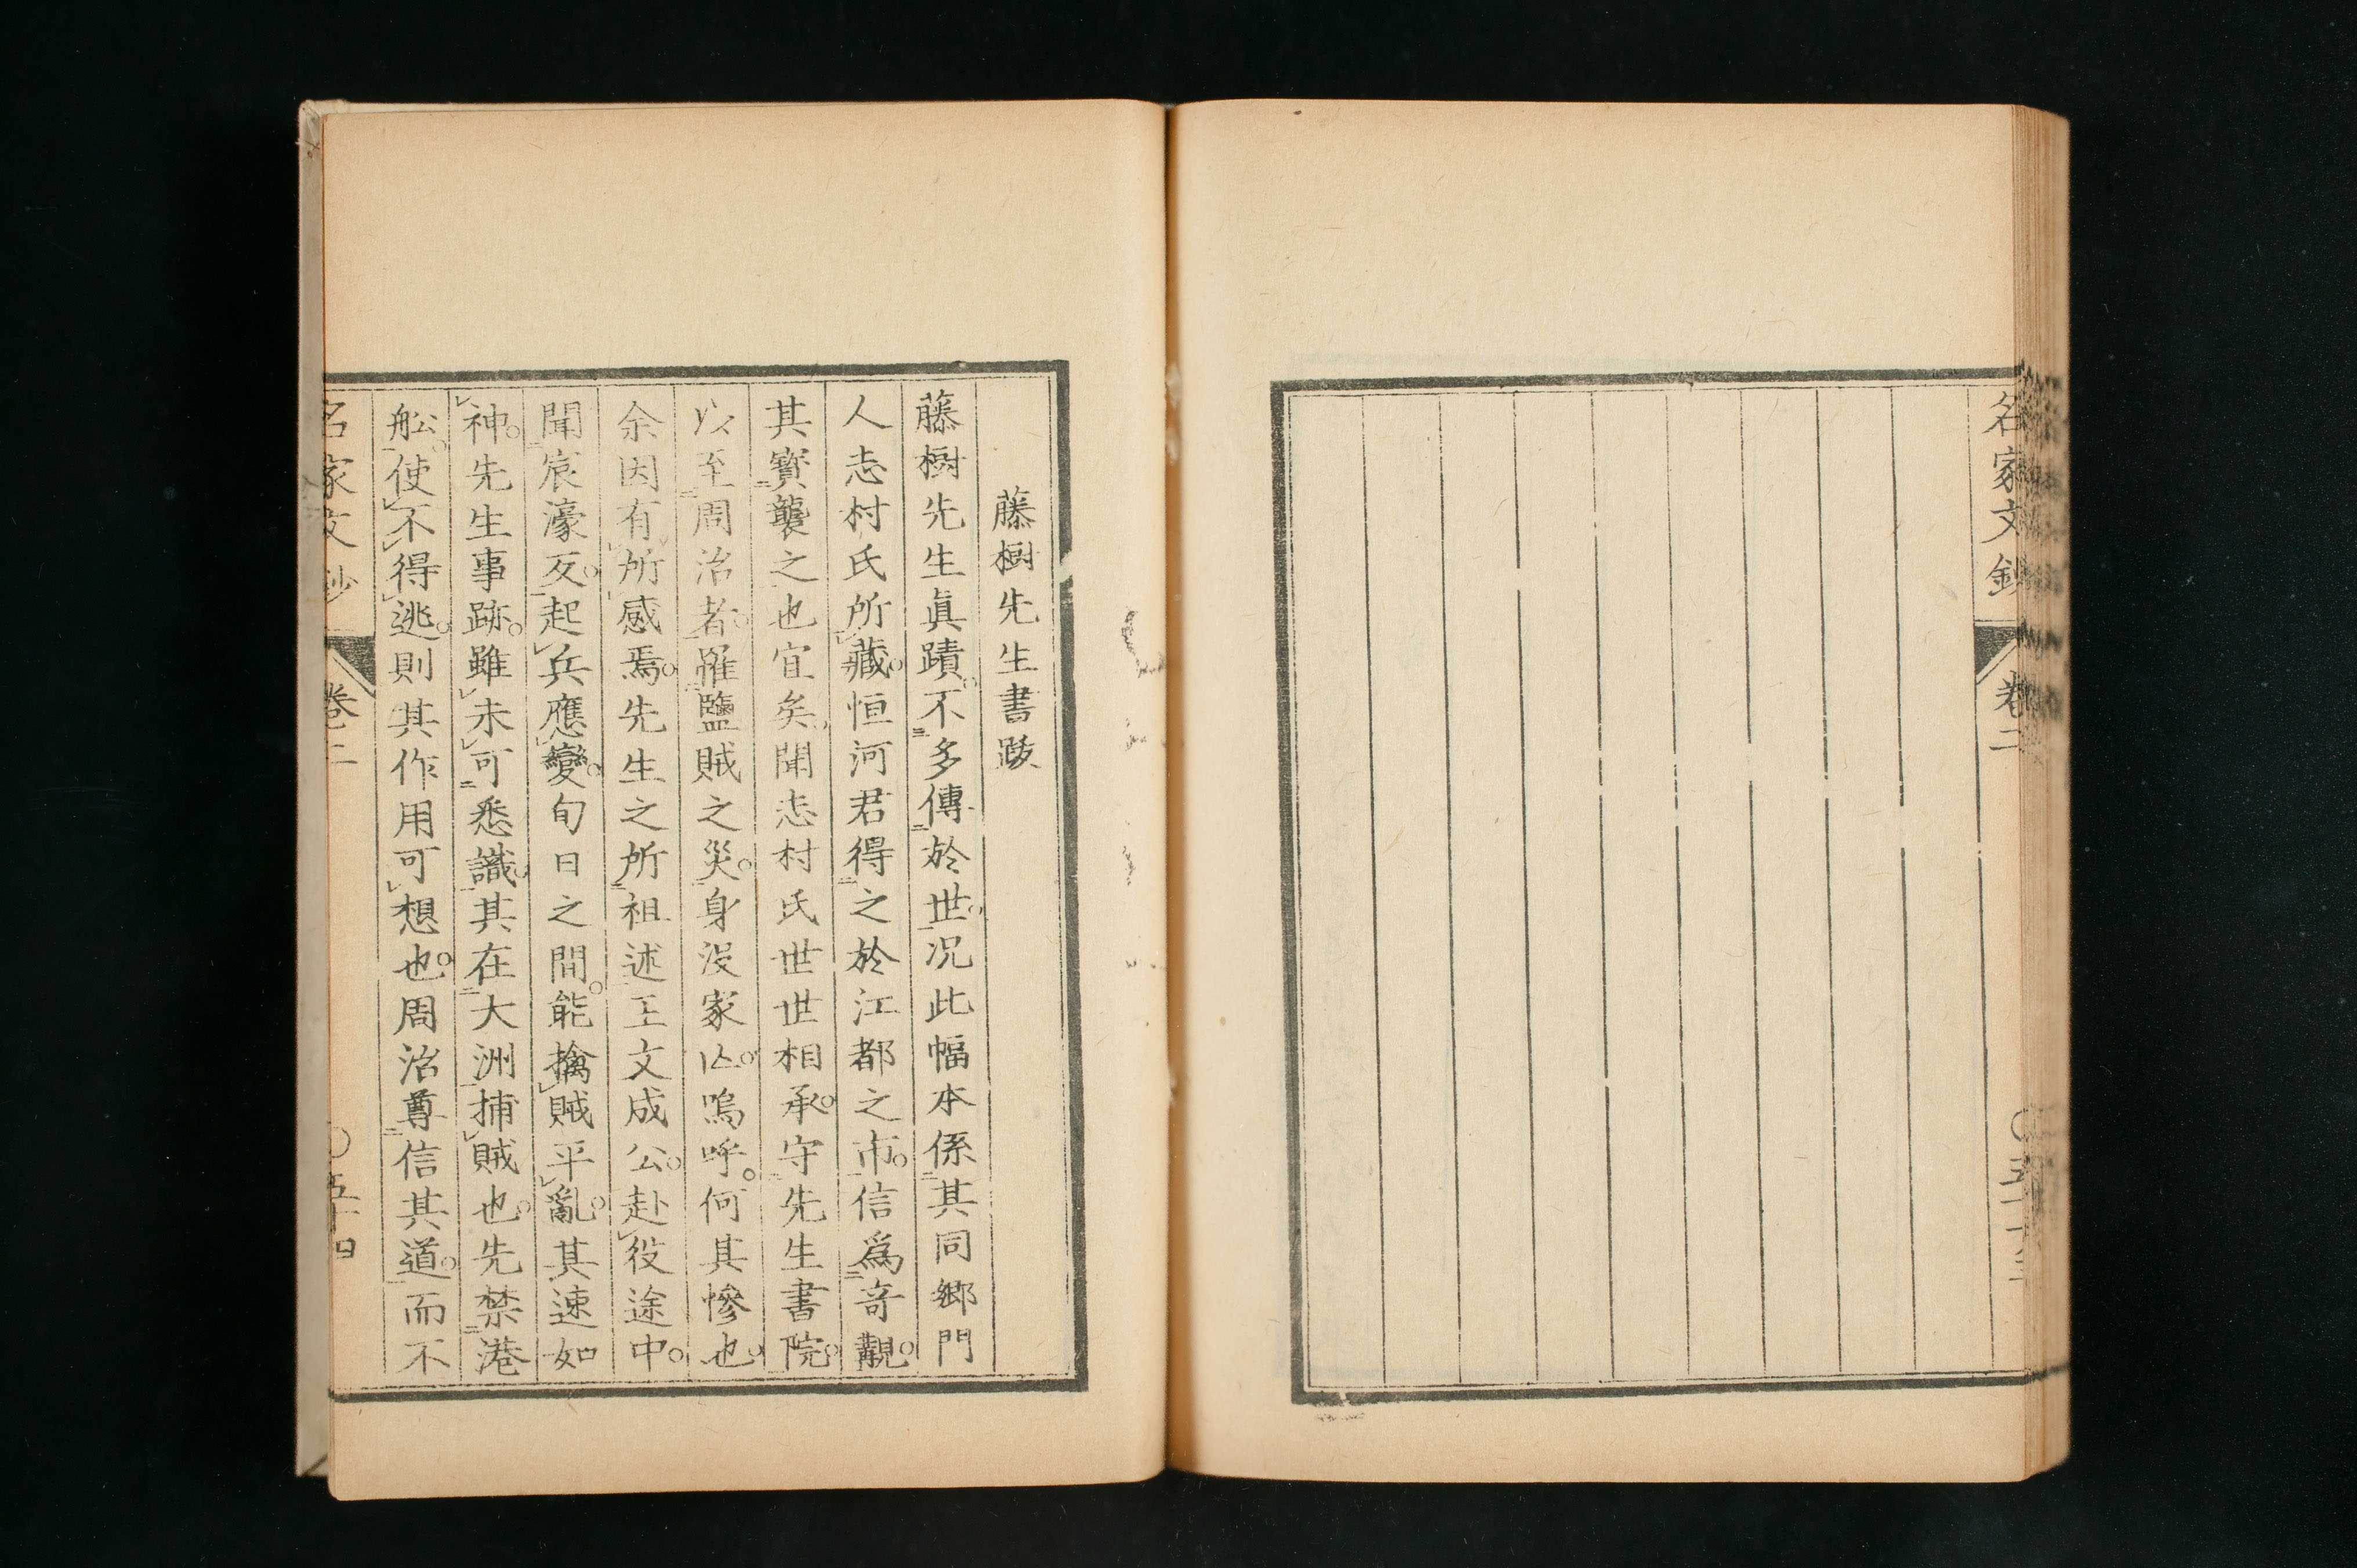 名家文鈔 卷二 〇五十三
藤樹先生書跋
藤樹先生眞蹟不多傳於世况此幅本係其同鄉門
人志村氏所藏恒河君得之於江都之市信爲竒觀
其寳襲之也宜矣聞志村氏世世相承守先生書院
以至周治者罹鹽賊之災身沒家亾嗚呼何其慘也
余因有所感焉先生之所祖述王文成公赴役途中
聞宸濠反起兵應變旬日之間能擒賊平亂其速如
神先生事跡雖未可悉識其在大洲捕賊也先禁港
舩使不得逃則其作用可想也周治尊信其道而不
名家文鈔 卷二 〇五十四